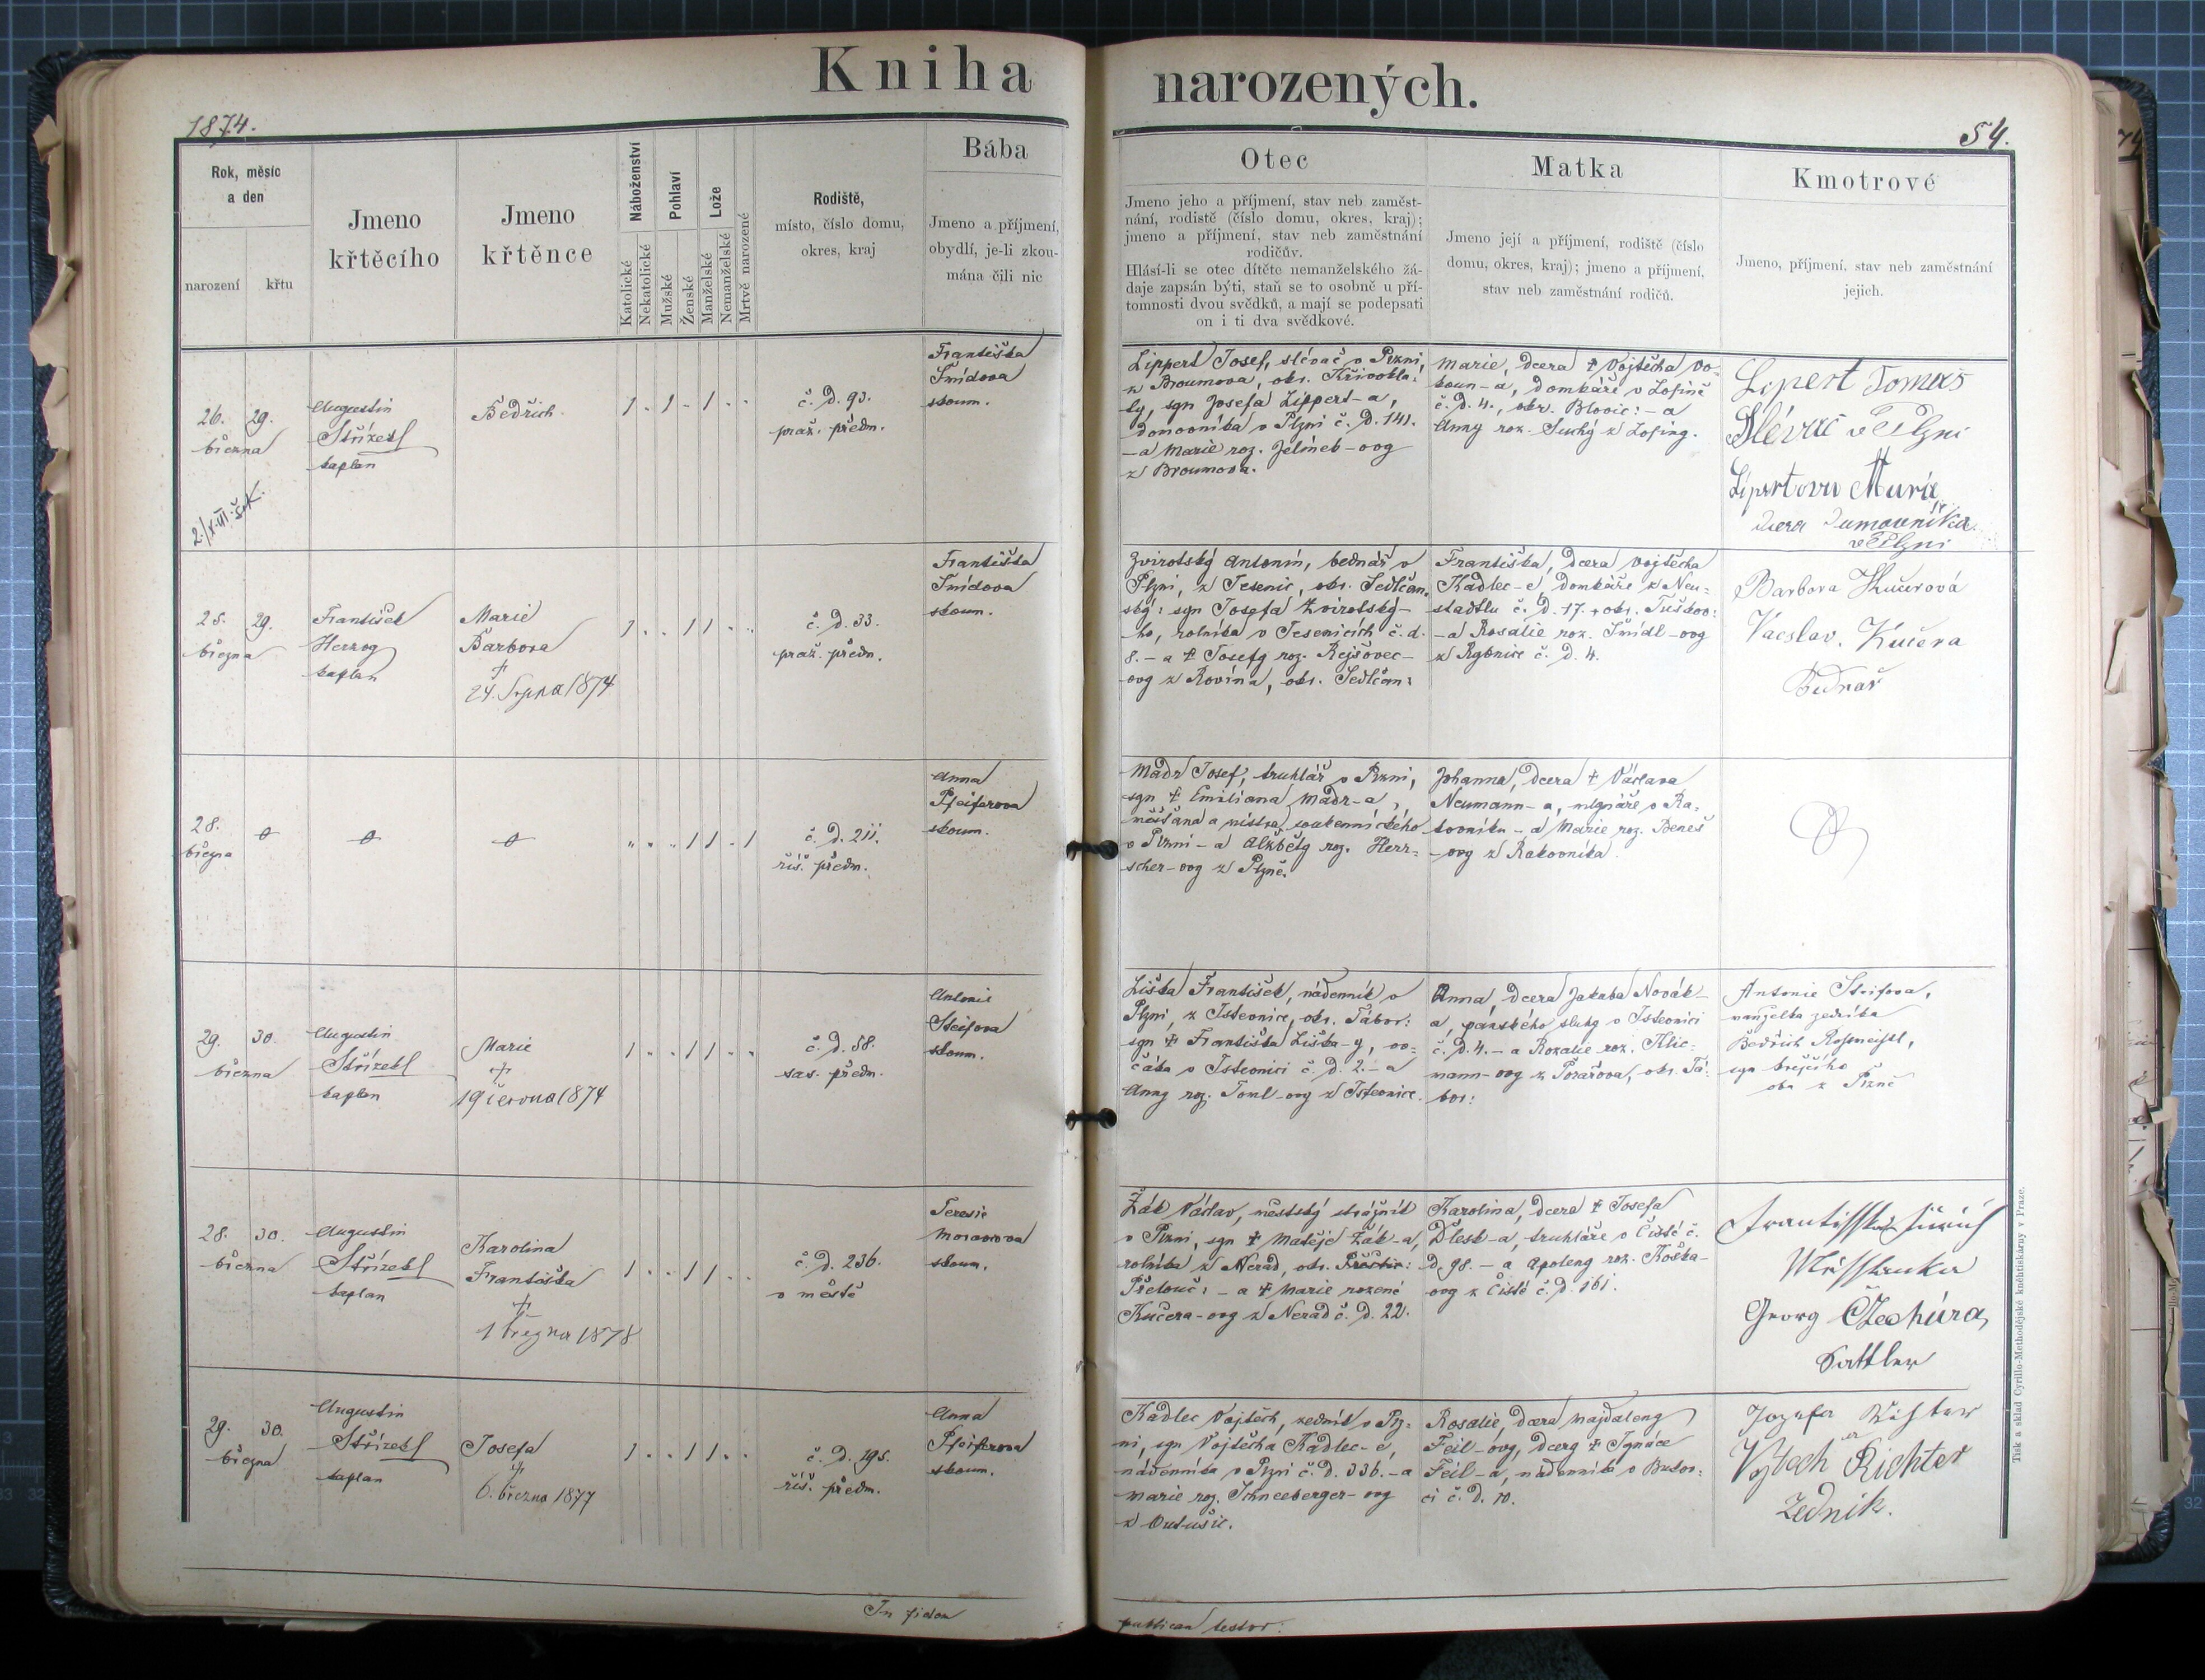 Kniha narozených.
1874.
54.
Rok, měsíc
a den
narození
křtu
Jmeno
křtěcího
Jmeno
křtěnce
Náboženství
Katolické
Nekatolické
Pohlaví
Mužské
Ženské
Lože
Manželské
Nemanželské
Mrtvě narozené
Rodiště,
místo, číslo domu,
okres, kraj
Bába
Jmeno a příjmení,
obydlí, je-li zkou-
mána čili nic
Otec
Jmeno jeho a příjmení, stav neb zaměst-
nání, rodiště (číslo domu, okres, kraj);
jmeno a příjmení, stav neb zaměstnání
rodičův.
Hlásí-li se otec dítěte nemanželského žá-
daje zapsán býti, staň se to osobně u pří-
tomnosti dvou svědků, a mají se podepsati
on i ti dva svědkové.
Matka
Jmeno její a příjmení, rodiště (číslo
domu, okres, kraj); jmeno a příjmení,
stav neb zaměstnání rodičů.
Kmotrové
Jmeno, příjmení, stav neb zaměstnání
jejich.
26. 29.
března
Augustin
Střízekl
kaplan
Bedřich
1 1 1
č. d. 93.
praž. předm.
Františka
Šmídova
skoum.
Lippert Josef, slévač v Plzni,
z Broumova, okr. Křivoklá-
ty, syn Josefa Lippert-a,
domovníka v Plzni č. d. 141.
-a Marie roz. Jelínek-ovy
z Broumova.
Marie, dcera † Vojtěcha Vo-
koun-a, domkáře v Lošině
č. d. 4., okr. Blovic: -a
Anny roz. Suchý z Lošiny.
Lipert Tomáš
Slévač v Plzni
Lipertova Marie
dcera Dumovníka
v Plzni
25. 29.
března
František
Herzog
kaplan
Marie
Barbora
†
24. Srpna 1874
1 1 1
č. d. 33.
praž. předm.
Františka
Šmídova
skoum.
Zvírotský Antonín, bednář v
Plzni, z Jesenic, okr. Sedlčan-
ský: syn Josefa Zvirotský-
ho, rolníka v Jesenicích č. d.
8. - a † Josefy roz. Rejšovec-
ovy z Rovína, okr. Sedlčan:
Františka, dcera Vojtěcha
Kadlec-e, domkáře z Neu-
stadtlu č. d. 17. okr. Tuškov:
-a Rosalie roz. Šmídl-ovy
z Rybnice č. d. 4.
Barbora Kučerová
Vacslav. Kučera
Bednař
28.
března
1 1 1
č. d. 211.
říš. předm.
Anna
Pfeiferova
skoum.
Mádr Josef, truhlář v Plzni,
syn † Emiliana Mádr-a,
měšťana a mistra soukennického
v Plzni - a Alžběty roz. Herr-
scher-ovy z Plzně.
Johanna, dcera † Václava
Neumann-a, mlynáře v Ra-
kovníku - a Marie roz. Beneš
-ovy z Rakovníka.
29. 30.
března
Augustin
Střízekl
kaplan
Marie
†
19 června 1874
1 1 1
č. d. 58.
sas. předm.
Antonie
Steifova
skoum.
Liška František, nádenník v
Plzni, z Jstebnice, okr. Tábor:
syn † Františka Liška-y, ov-
čáka v Jstebnici č. d. 2. - a
Anny roz. Toml-ovy z Jstebnice.
Anna, dcera Jakuba Novák-
a, panského sluhy v Jstebnici
č. d. 4. - a Rozalie roz. Klic-
mann-ovy z Požařova, okr. Tá-
bor:
Antonie Steifova,
manželka zedníka
Bedřich Rossmeissl,
syn krejčího
oba z Plzně
28. 30.
března
Augustin
Střízekl
kaplan
Karolina
Františka
†
1 Března 1878
1 1 1
č. d. 236.
v městě
Teresie
Moravova
skoum.
Žák Václav, městský strážník
v Plzni, syn † Matěje Žák-a,
rolníka z Nerad, okr.
Přelouč: - a † Marie rozené
Kučera-ovy z Nerad č. d. 22.
Karolina, dcera † Josefa
Dlesk-a, truhláře v Čisté č.
d. 98. - a Apoleny roz. Koška-
ovy z Čisté č. d. 161.
Georg Czechúra,
Sattler
29. 30.
března
Augustin
Střízekl
kaplan
Josefa
†
6. března 1877
1 1 1
č. d. 195.
říš. předm.
Anna
Pfeiferova
skoum.
Kadlec Vojtěch, zedník v Plz-
ni, syn Vojtěcha Kadlec-e,
nádenníka v Plzni č. d. 336. - a
Marie roz. Schneeberger-ovy
z Dutušic.
Rosalie, dcera Majdaleny
Feil-ovy, dcery † Ignáce
Feil-a, nádenníka v Bukov-
ci č. d. 10.
Jozefa Richter
Vojtěch Richter
Zedník.
In fidem
publicam testor.
Tisk a sklad Cyrillo-Methodějské knihtiskárny v Praze.